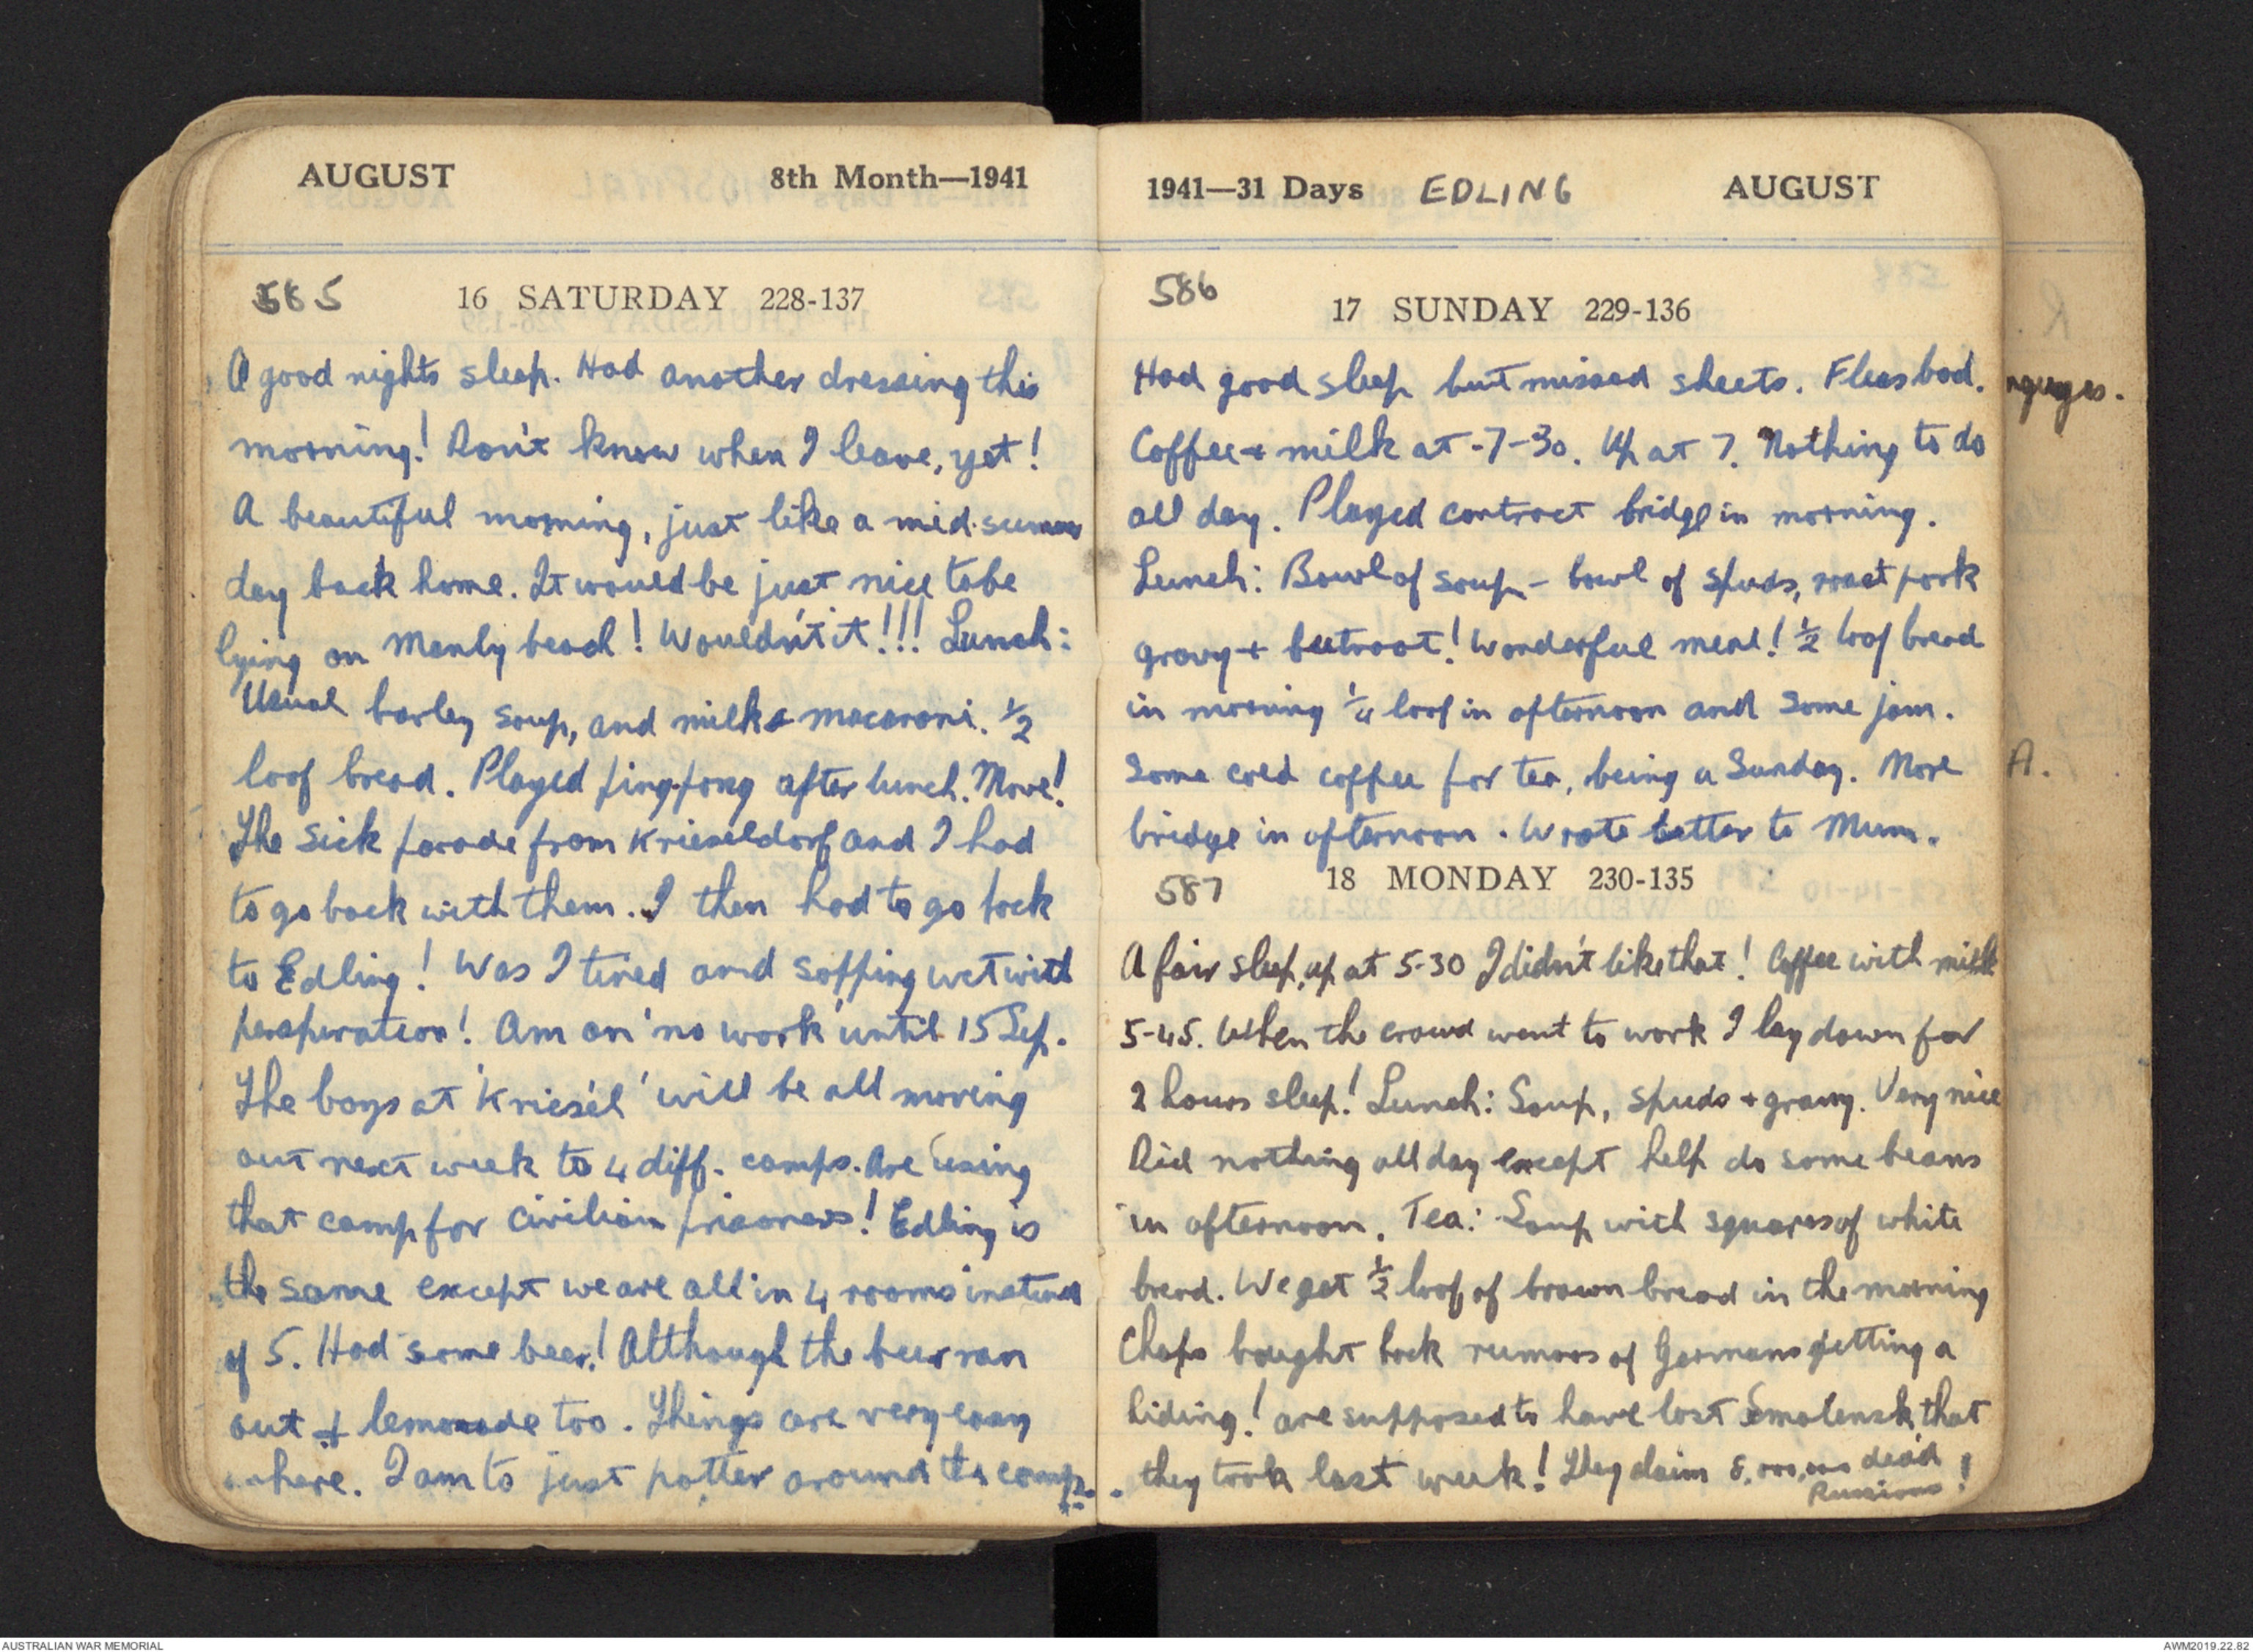 AUGUST 8th Month—1941
585 16 SATURDAY 228-137
A good nights sleep. Had another dressing this
morning! Don't know when I leave, yet!
A beautiful morning, just like a mid-summer
day back home. It would be just nice to be
lying on Manly beach! Wouldn't it!!! Lunch:
Usual barley soup, and milk & macaroni. ½
loaf bread. Played ping-pong after lunch. Move!
The sick parade from Krieseldorf and I had
to go back with them. I then had to go back
to Edling! Was I tired and sopping wet with
perspiration! Am on 'no work' until 15 Sep.
The boys at 'Kriesel' will be all moving
out next week to 4 diff. camps. Are using
that camp for civilian prisoners! Edling is
the same except we are all in 4 rooms instead
of 5. Had some beer! Although the beer ran
out + lemonade too. Things are very easy
here. I am to just potter around the camp.
1941—31 Days EDLING AUGUST
586 17 SUNDAY 229-136
Had good sleep but missed sheets. Fleas bad.
Coffee + milk at -7-30. Up at 7. Nothing to do
all day. Played contract bridge in morning.
Lunch: Bowl of soup - bowl of spuds, roast pork
gravy + beetroot! Wonderful meal! ½ loaf bread
in morning ¼ loaf in afternoon and some jam.
Some cold coffee for tea, being a Sunday. More
bridge in afternoon. Wrote letter to Mum.
587 18 MONDAY 230-135
A fair sleep, up at 5-30 I didn't like that! Coffee with milk
5-45. When the crowd went to work I lay down for
2 hours sleep! Lunch: Soup, spuds + gravy. Very nice
Did nothing all day except help do some beans
in afternoon. Tea: Soup with squares of white
bread. We get ½ loaf of brown bread in the morning
Chaps bought back rumors of Germans getting a
hiding! are supposed to have lost Smolensk, that
they took last week! They claim 5,000,000 dead
Russians!
nguages.
A.
AUSTRALIAN WAR MEMORIAL AWM2019.22.82